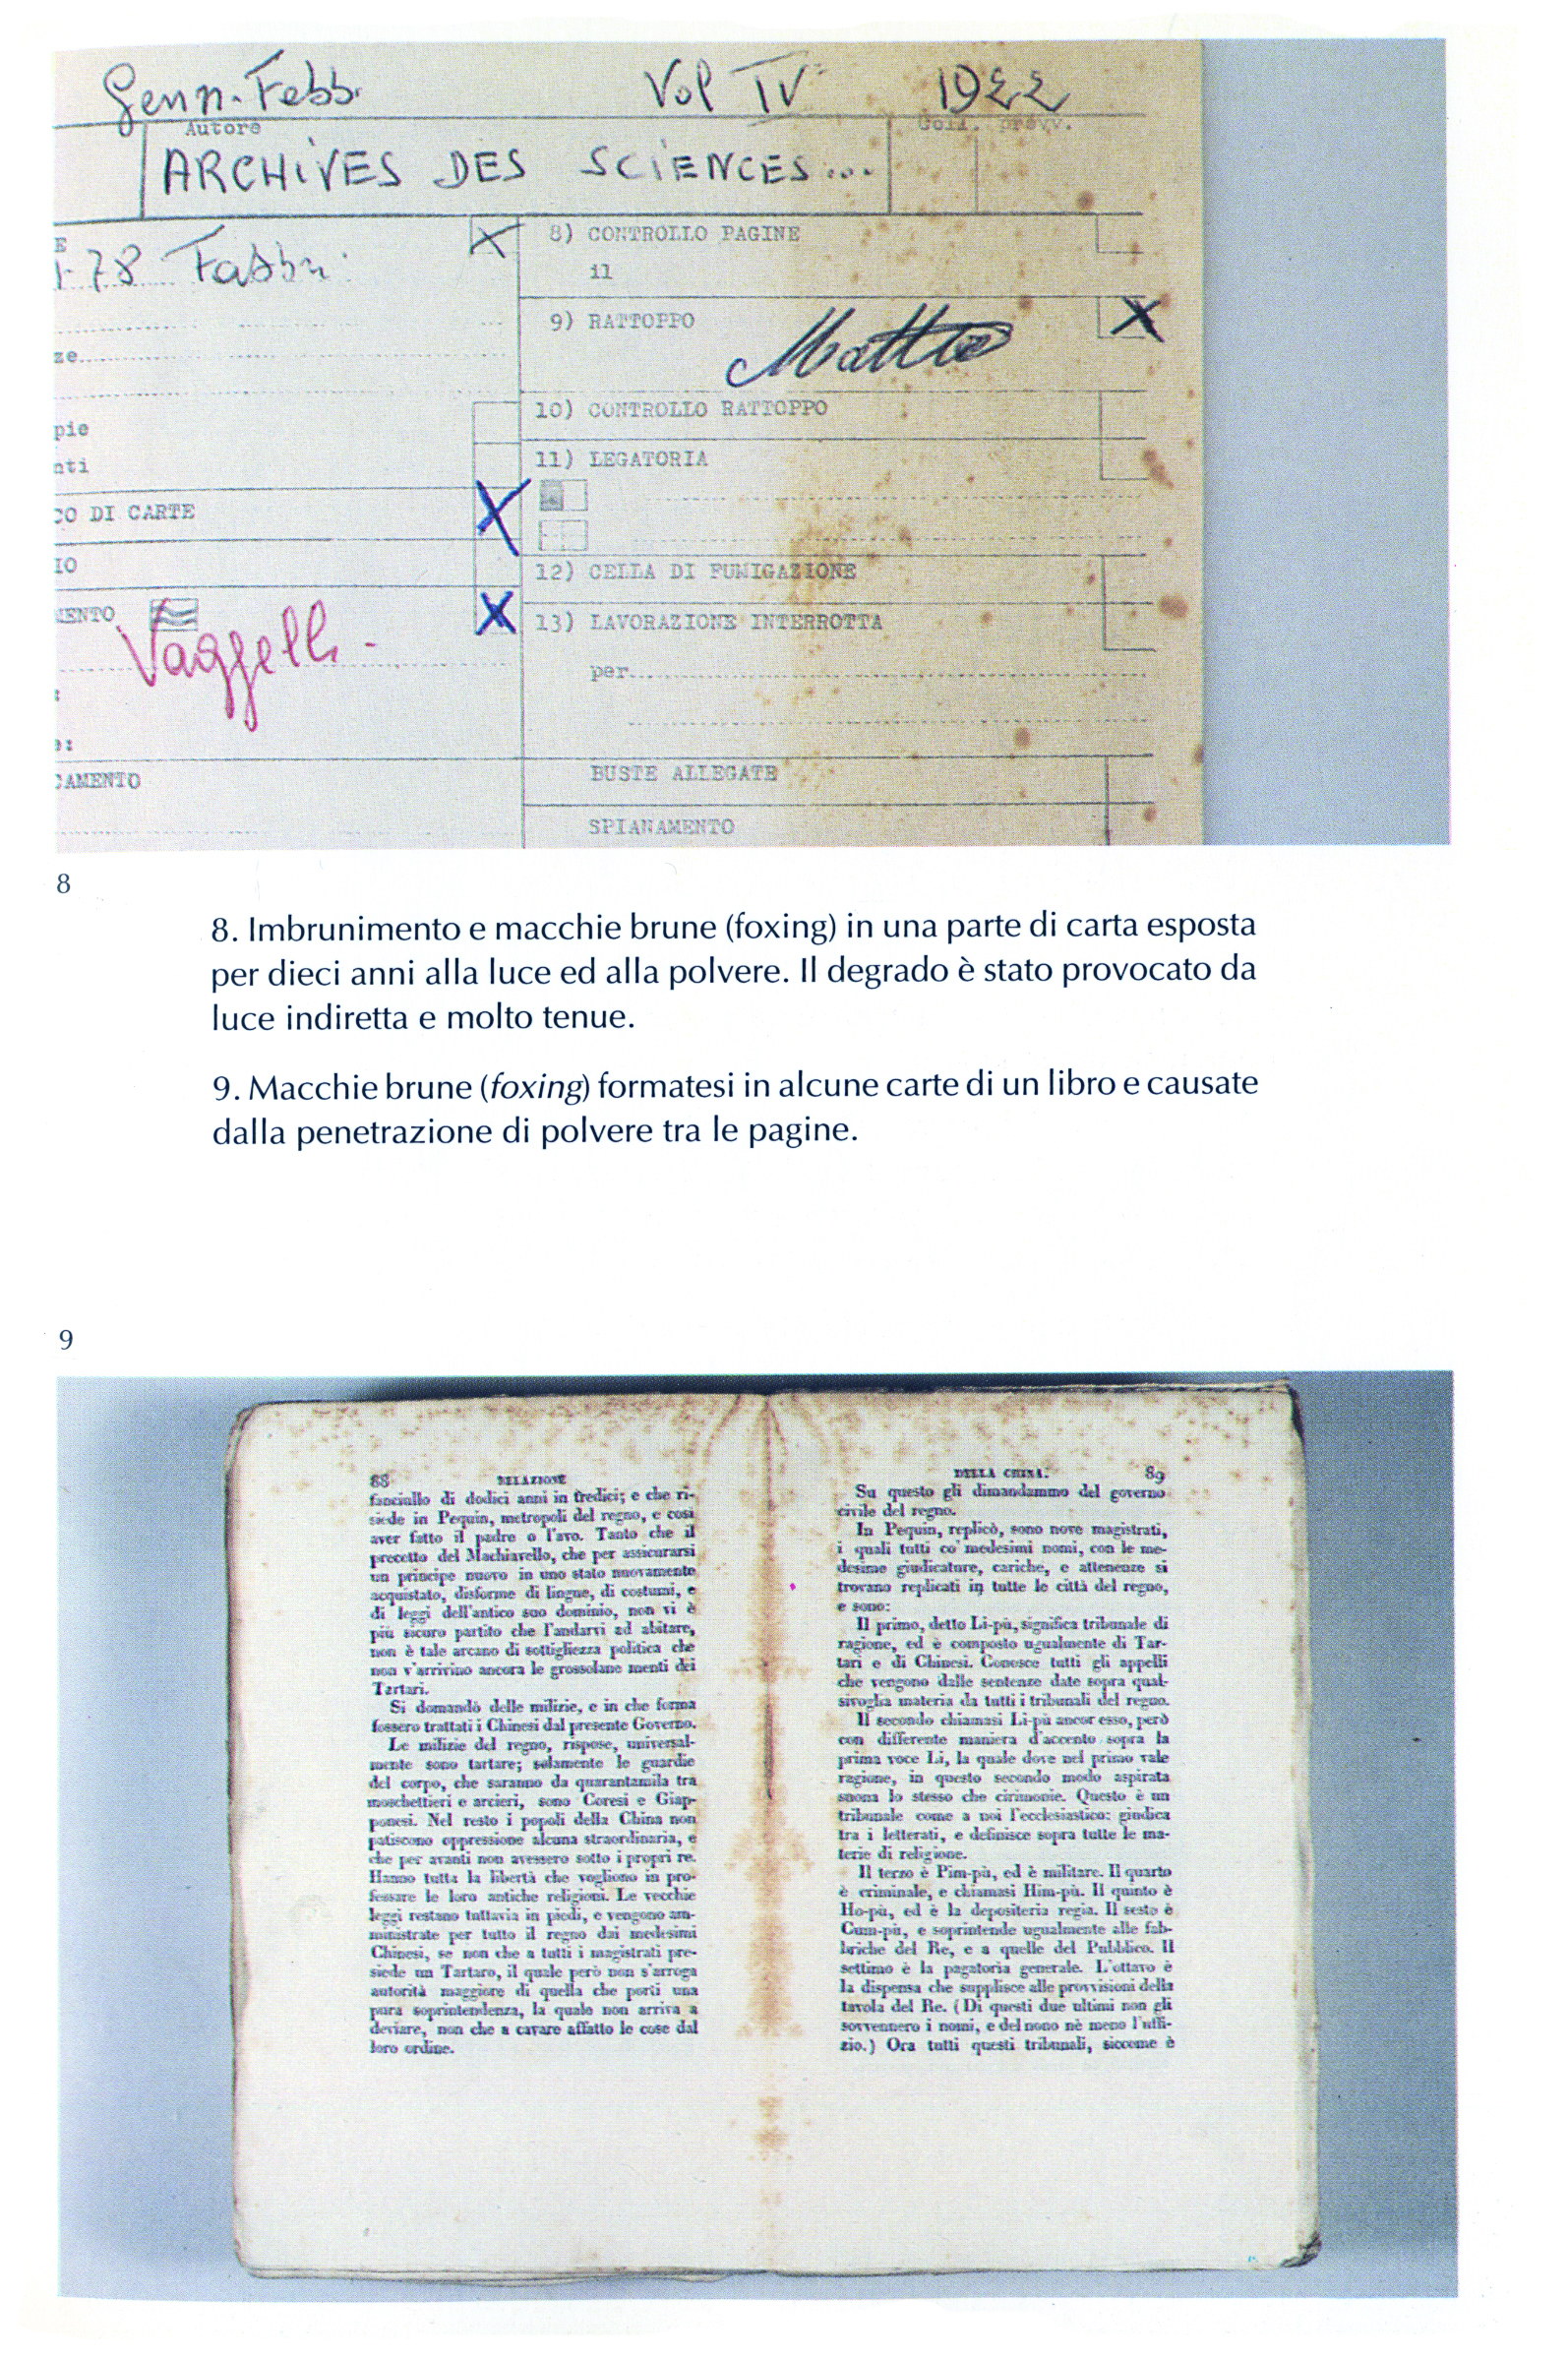 Genn. Febb. Vol IV 1922
Autore Coll. provv.
ARCHIVES DES SCIENCES...
E
78 Fabbri
8) CONTROLLO PAGINE
il
9) RATTOPPO
ze
10) CONTROLLO RATTOPPO
pie
11) LEGATORIA
nti
CO DI CARTE
IO
12) CELLA DI FUMIGAZIONE
MENTO
13) LAVORAZIONE INTERROTTA
Vaggelli -
per
BUSTE ALLEGATE
CAMENTO
SPIANAMENTO
8
8. Imbrunimento e macchie brune (foxing) in una parte di carta esposta
per dieci anni alla luce ed alla polvere. Il degrado è stato provocato da
luce indiretta e molto tenue.
9. Macchie brune (foxing) formatesi in alcune carte di un libro e causate
dalla penetrazione di polvere tra le pagine.
9
88 RELAZIONE
fanciullo di dodici anni in tredici; e che ri-
siede in Pequin, metropoli del regno, e così
aver fatto il padre o l'avo. Tanto che il
precetto del Machiavello, che per assicurarsi
un principe nuovo in uno stato nuovamente
acquistato, disforme di lingue, di costumi, e
di leggi dell'antico suo dominio, non vi è
più sicuro partito che l'andarvi ad abitare,
non è tale arcano di sottigliezza politica che
non v'arrivino ancora le grossolane menti dei
Tartari.
Si domandò delle milizie, e in che forma
fossero trattati i Chinesi dal presente Governo.
Le milizie del regno, rispose, universal-
mente sono tartare; solamente le guardie
del corpo, che saranno da quarantamila tra
moschettieri e arcieri, sono Coresi e Giap-
ponesi. Nel resto i popoli della China non
patiscono oppressione alcuna straordinaria, e
che per avanti non avessero sotto i propri re.
Hanno tutta la libertà che vogliono in pro-
fessare le loro antiche religioni. Le vecchie
leggi restano tuttavia in piedi, e vengono am-
ministrate per tutto il regno dai medesimi
Chinesi, se non che a tutti i magistrati pre-
siede un Tartaro, il quale però non s'arroga
autorità maggiore di quella che porti una
pura soprintendenza, la quale non arriva a
deviare, non che a cavare affatto le cose dal
loro ordine.
DELLA CHINA. 89
Su questo gli dimandammo del governo
civile del regno.
In Pequin, replicò, sono nove magistrati,
i quali tutti co' medesimi nomi, con le me-
desime giudicature, cariche, e attenenze si
trovano replicati in tutte le città del regno,
e sono:
Il primo, detto Li-pù, significa tribunale di
ragione, ed è composto ugualmente di Tar-
tari e di Chinesi. Conosce tutti gli appelli
che vengono dalle sentenze date sopra qual-
sivoglia materia da tutti i tribunali del regno.
Il secondo chiamasi Li-pù ancor esso, però
con differente maniera d'accento sopra la
prima voce Li, la quale dove nel primo vale
ragione, in questo secondo modo aspirata
suona lo stesso che cirimonie. Questo è un
tribunale come a noi l'ecclesiastico: giudica
tra i letterati, e definisce sopra tutte le ma-
terie di religione.
Il terzo è Pim-pù, ed è militare. Il quarto
è criminale, e chiamasi Him-pù. Il quinto è
Ho-pù, ed è la depositeria regia. Il sesto è
Cum-pù, e soprintende ugualmente alle fab-
briche del Re, e a quelle del Pubblico. Il
settimo è la pagatoria generale. L'ottavo è
la dispensa che supplisce alle provvisioni della
tavola del Re. (Di questi due ultimi non gli
sovvennero i nomi, e del nono nè meno l'uffi-
zio.) Ora tutti questi tribunali, siccome è